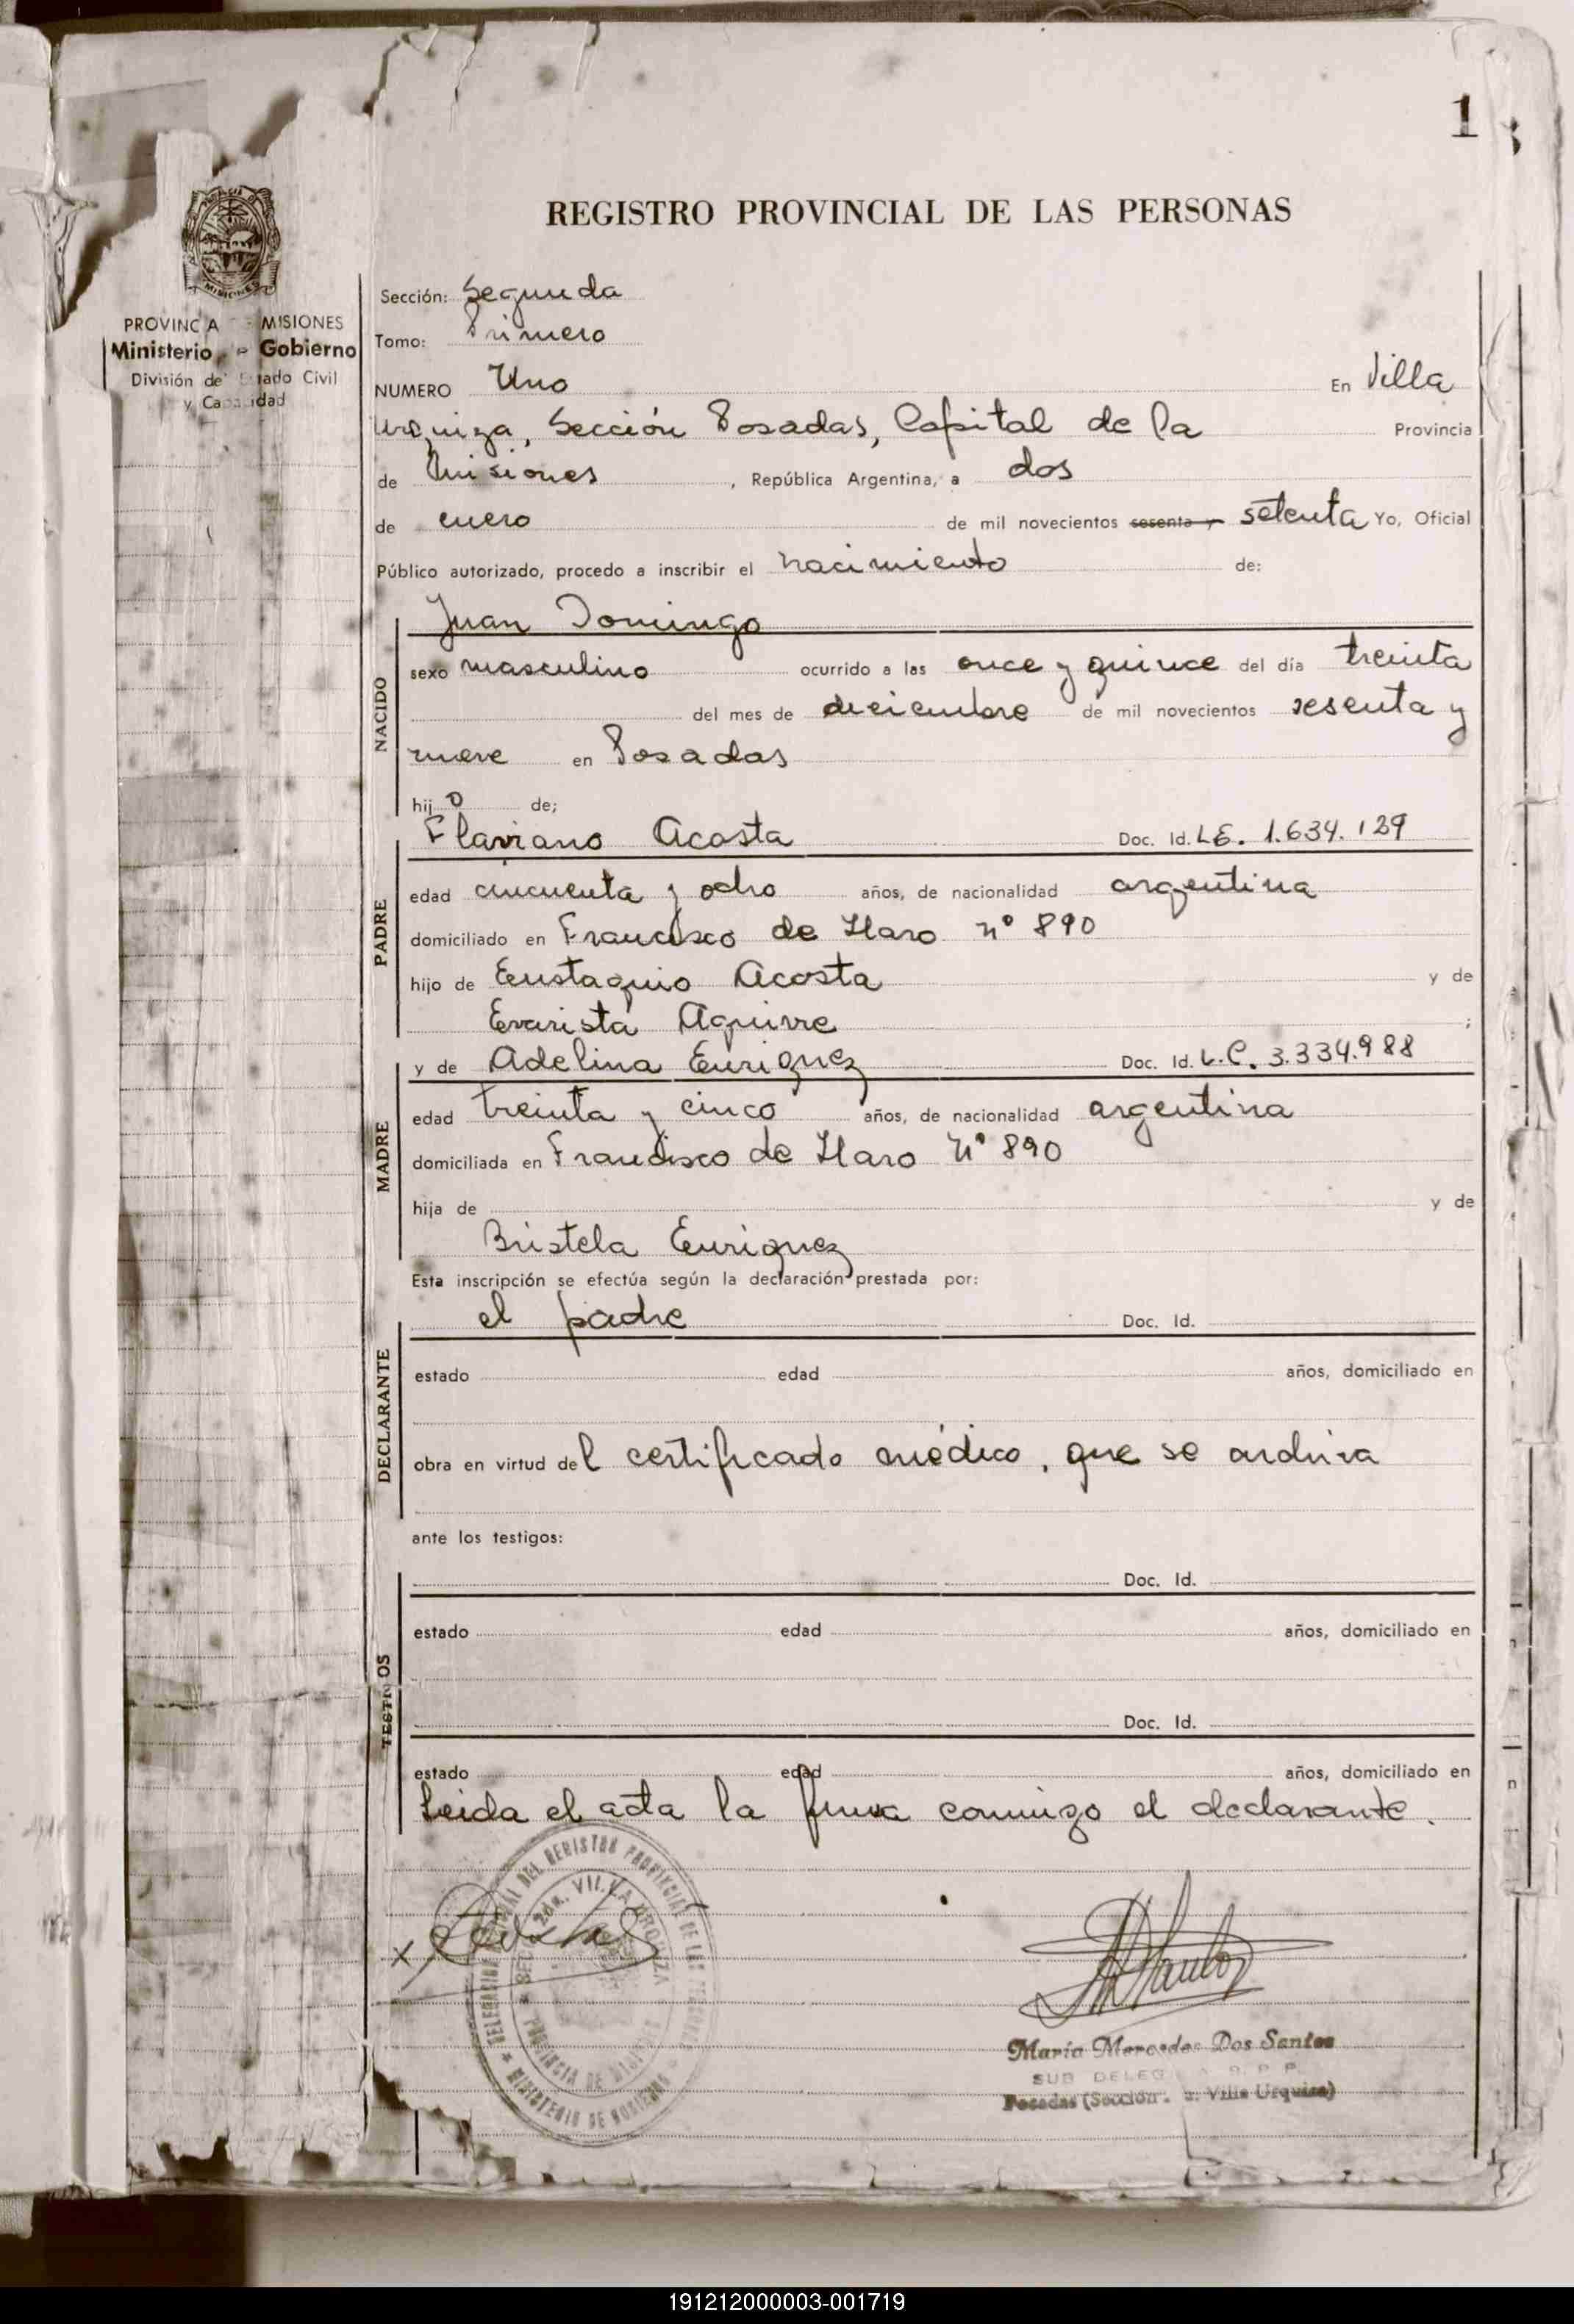 1
REGISTRO PROVINCIAL DE LAS PERSONAS
PROVINC A MISIONES
Ministerio Gobierno
División de Estado Civil
y Capacidad
Sección: Segunda
Tomo: Primero
NUMERO Uno En Villa
Urquiza, Sección Posadas, Capital de la Provincia
de Misiones, República Argentina, a dos
de enero de mil novecientos sesenta y setenta Yo, Oficial
Público autorizado, procedo a inscribir el nacimiento de:
Juan Domingo
NACIDO
sexo masculino ocurrido a las once y quince del día treinta
del mes de diciembre de mil novecientos sesenta y
nueve en Posadas
hijo de;
Flaviano Acosta Doc. Id. L.E. 1.634.129
PADRE
edad cincuenta y ocho años, de nacionalidad argentina
domiciliado en Francisco de Haro nº 890
hijo de Eustaquio Acosta y de
Evarista Aquirre ;
y de Adelina Enriquez Doc. Id. L.C. 3.334.988
MADRE
edad treinta y cinco años, de nacionalidad argentina
domiciliada en Francisco de Haro Nº 890
hija de y de
Bristela Enriquez
Esta inscripción se efectúa según la declaración prestada por:
el padre Doc. Id.
DECLARANTE
estado edad años, domiciliado en
obra en virtud del certificado médico, que se archiva
ante los testigos:
Doc. Id.
TESTIGOS
estado edad años, domiciliado en
Doc. Id.
estado edad años, domiciliado en
Leida el acta la firma conmigo el declarante.
DEL REGISTRO PROVINCIAL DE LAS PERSONAS
VILLA URQUIZA
PROVINCIA DE MISIONES
MINISTERIO DE GOBIERNO
María Mercedes Dos Santos
SUB DELEG R. P. P.
Posadas (Sección Villa Urquiza)
191212000003-001719